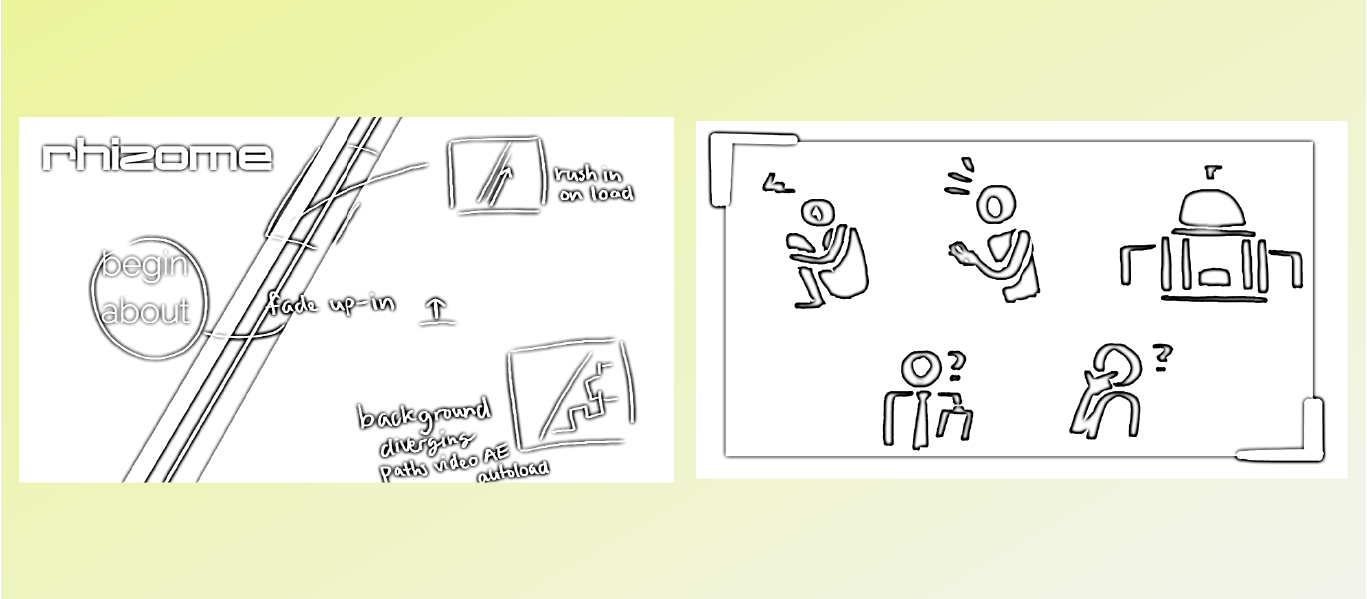 rhizome
rush in
on load
begin
about
fade up-in
background
diverging
paths video AE
autoload
?
?